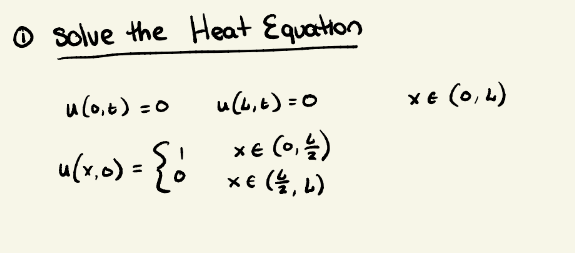 ① Solve the Heat Equation
u(0,t) = 0 u(L,t) = 0 x ∈ (0, L)
u(x,0) = { 1 x ∈ (0, L/2)
0 x ∈ (L/2, L)